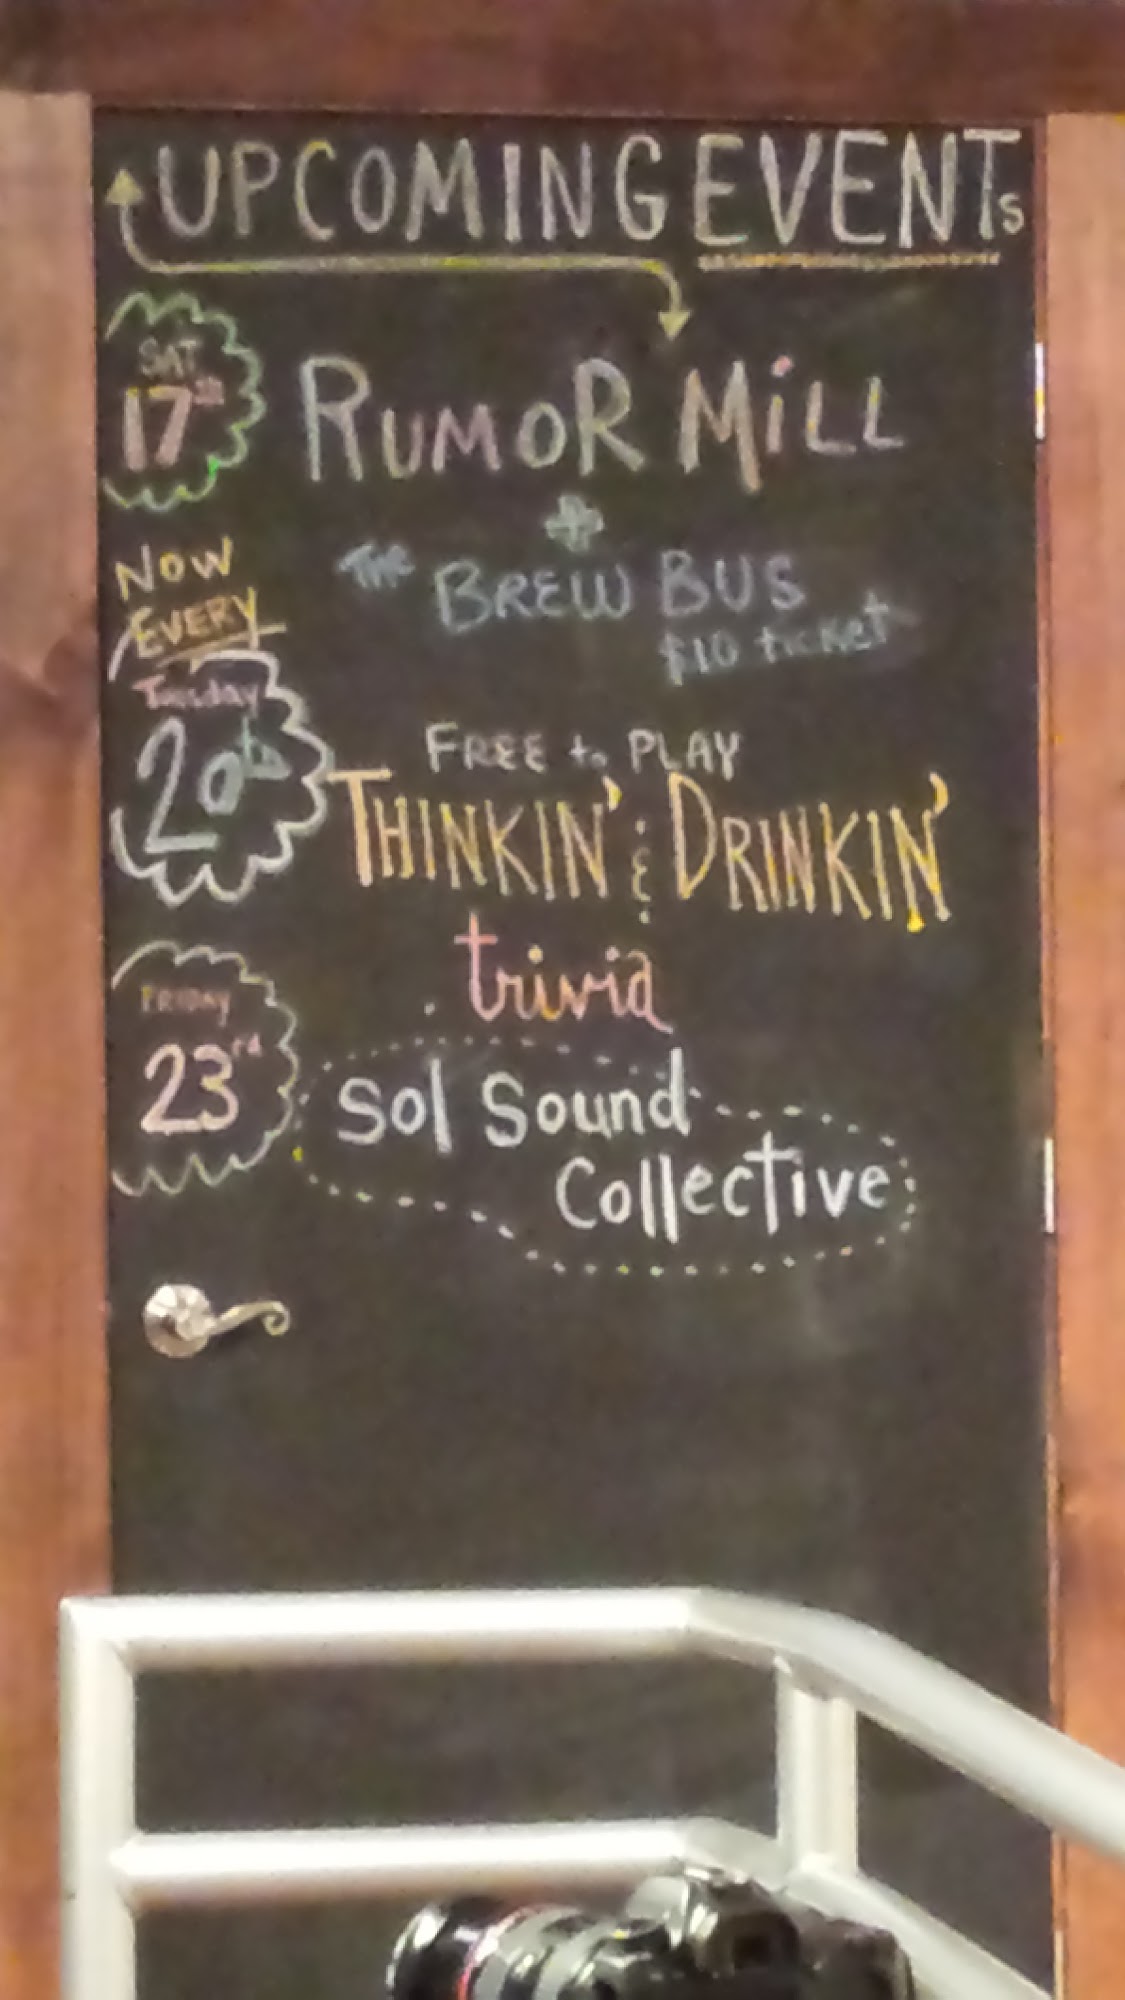 UPCOMING EVENTs
SAT
17th
RUMOR MiLL
+
THE BREW BUS
$10 ticket
NOW
EVERY
Tuesday
20th
FREE to PLAY
THINKIN' & DRINKIN'
trivia
FRIDAY
23rd
Sol Sound
Collective